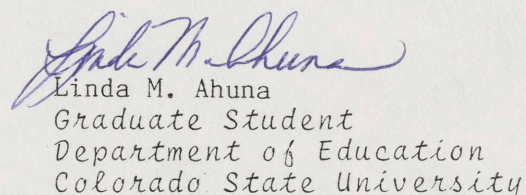 Linda M. Ahuna
Linda M. Ahuna
Graduate Student
Department of Education
Colorado State University